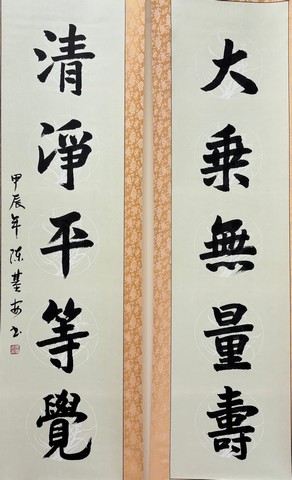 大乗無量壽
清淨平等覺
甲辰年陳基安書